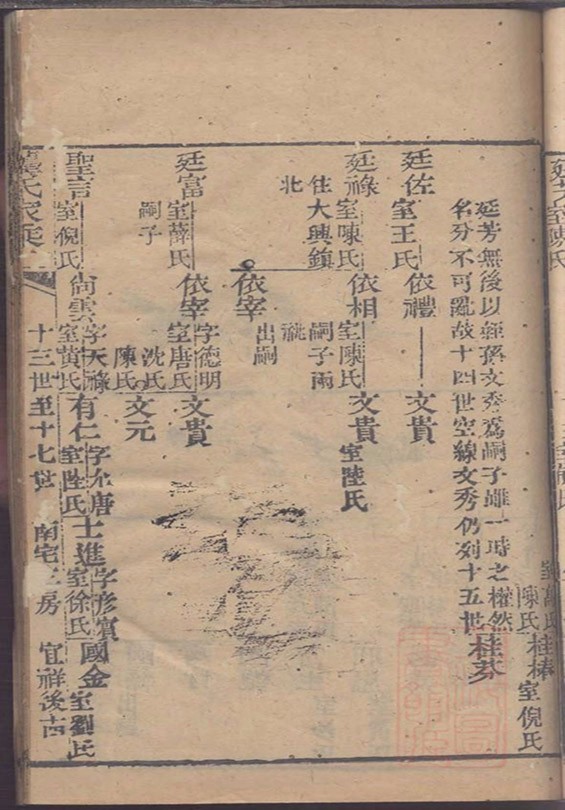 陳氏
桂椿 室倪氏
廷芳無後以經孫文秀為嗣子雖一時之權然
名分不可亂故十四世空線文秀仍列十五世
桂芬
廷佐 室王氏 依禮 文貴
廷祿 室陳氏 依相 室陳氏 文貴 室陸氏
住大興鎮 嗣子兩
北 祧
依宰 出嗣
廷富 室薛氏 依宰 字德明 室唐氏 文貴
嗣子 沈氏
陳氏 文元
聖言 室倪氏 尚雲 字天祿 室黃氏 有仁 字允唐 室陸氏 士進 字彥賓 室徐氏 國金 室劉氏
龔氏家乘 十三世至十七世 南宅三房 宜祥後